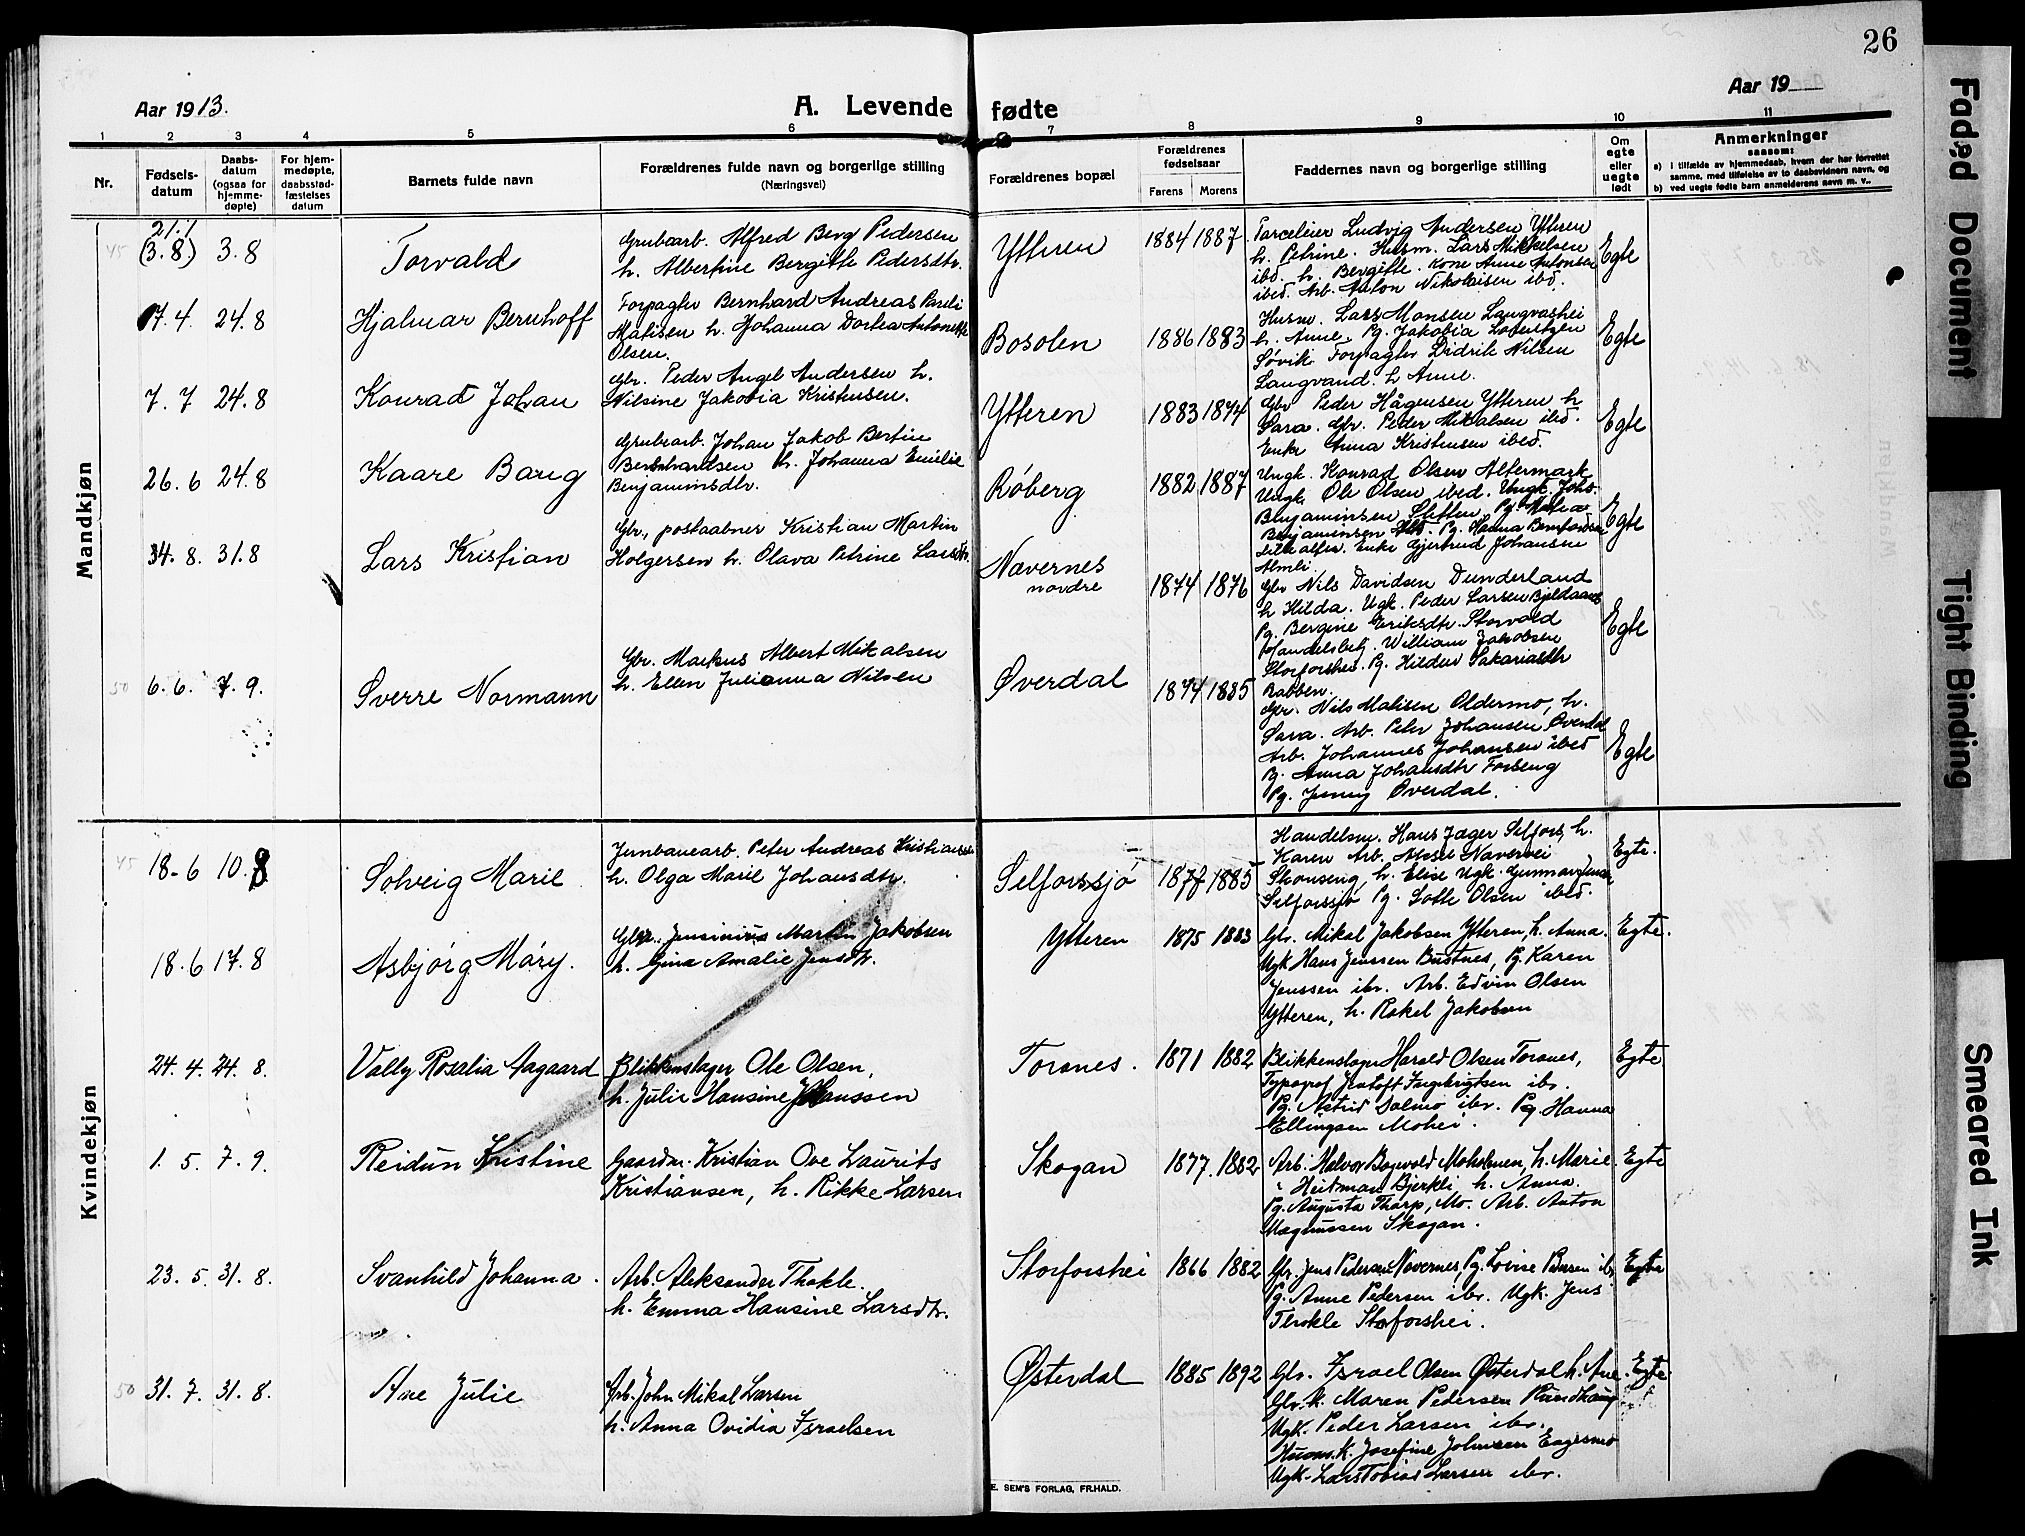 26
Aar 1913.
A. Levende fødte
Aar 19
1 2 3 4 5 6 7 8 9 10 11
Nr.
Fødselsdatum
Daabsdatum (ogsaa for hjemmedøpte)
For hjemmedøpte, daabsstadfæstelses datum
Barnets fulde navn
Forældrenes fulde navn og borgerlige stilling
(Næringsvei)
Forældrenes bopæl
Forældrenes fødselsaar
Farens Morens
Faddernes navn og borgerlige stilling
Om egte eller uegte født
Anmerkninger
saasom:
a) i tilfælde av hjemmedaab, hvem der har forrettet samme, med tilføielse av to daabsvidners navn, og
b) ved uegte fødte barn anmelderens navn m. v..
Mandkjøn
45 21.1 (3.8.) 3.8 Torvald
Grubearb. Alfred Berg Pedersen
h. Albertine Bergitte Pedersdtr.
Ytteren 1884 1887
Parceleier Ludvig Andersen Ytteren
h. Petrine. Husm. Lars Mikkelsen
ibd. h. Bergitte. Kone Anne Antonsen
ibed. Arb. Anton Nikolaisen ibd.
Egte
17.4. 24.8 Hjalmar Bernhoff
Forpagter Bernhard Andreas Pareli
Matisen h. Johanna Dortea Antonette
Olsen.
Bosolen 1886 1883
Husm. Lars Monsen Langvashei
h. Anne. Pg. Jakobia Lorentzen
Søvik. Forpagter Didrik Nilsen
Langvand. h Anne.
Egte
7.7 24.8 Konrad Johan
Gbr. Peder Angel Andersen h.
Nilsine Jakobia Kristensen.
Ytteren 1883 1874
Gbr Peder Hågensen Ytteren h
Sara. Gbr. Peder Mikalsen ibd.
Enke Anna Kristensen ibed.
Egte
26.6 24.8 Kaare Barug
Grubearb. Johan Jakob Bertin
Bernhardsen h. Johanna Emilie
Benjaminsdtr.
Røberg 1882 1887
Ungk. Konrad Olsen Altermark
Ungk. Ole Olsen ibed. Ungk. Johs.
Benjaminsen Sletten. Pg. Maria
Benjaminsen ibd. Pg. Hanna Berntsdsen
Enke Gjertrud Johansen
Almli
Egte
34.8. 31.8 Lars Kristian
Gbr., postaabner Kristian Martin
Holgersen h. Olava Petrine Larsdtr.
Nævernes
nordre
1874 1876
Gbr Nils Davidsen Dunderland
h Hilda. Ugk. Peder Larsen Bjeldaanes
Pg. Bergine Eriksdtr. Storvold
Handelsbetj. William Jakobsen
Storforshei. Pg. Hildur Sakariasdtr
Rabben.
Egte
50 6.6. 7.9. Sverre Normann
Gbr. Markus Albert Mikalsen
h. Ellen Julianna Nilsen
Øverdal 1874 1885
Gbr. Nils Matisen Oldermo, h.
Sara. Arb. Peter Johansen Øverdal
Arb. Johannes Johansen ibed
Pg. Anna Johansdtr Forseng
Pg. Jenny Øverdal.
Egte
Kvindekjøn
45 18.6 10.8 Solveig Marie
Jernbanearb. Peter Andreas Kristiansen
h. Olga Marie Johansdtr.
Selforssjø 1877 1885
Handelsm. Hans Jæger Selfors, h.
Karen Arb. Aksel Navervei
Skonseng, h. Elise Ugk. Gunnar Jensen
Selforssjø Pg. Lotte Olsen ibed.
Egte.
18.6 17.8 Asbjørg Mary.
Gbr. Jensinius Martin Jakobsen
h. Gina Amalie Jensdtr.
Ytteren 1875 1883
Gbr. Mikal Jakobsen Ytteren, h. Anna.
Ugk Hans Jenssen Bustnes, Pg. Karen
Jenssen ibr. Arb. Edvin Olsen
Ytteren, h. Rakel Jakobsen
Egte.
24.4. 24.8. Vally Rosalia Aagaard
Blikkenslager Ole Olsen,
h. Julie Hansine Johanssen
Toranes. 1871 1882
Blikkenslager Harald Olsen Toranes,
Typograf Jentoft Ingebrigtsen ibr.
Pg. Astrid Dalmo ibr. Pg. Hanna
Ellingsen Mohei.
Egte
1.5. 7.9. Reidun Kristine
Gaardm. Kristian Ove Laurits
Kristiansen, h. Rikke Larsen
Skogan 1877. 1882
Arb. Halvor Bogvold Moholmen, h. Marie.
" Heitman Bjerkli h. Anna.
Pg. Augusta Thorp, Mo. Arb. Anton
Magnussen Skogan.
Egte
23.5. 31.8. Svanhild Johanna.
Arb. Aleksander Thokle.
h. Emma Hansine Larsdtr.
Storforshei 1866 1882
Gbr. Jens Pedersen Nævernes, Pg. Lovise Bersen ibr
Pg. Anne Pedersen ibr. Ugk. Jens
Throkle Storforshei.
Egte
50 31.7. 31.8. Ane Julie
Arb. John Mikal Larsen
h. Anna Ovidia Israelsen
Østerdal 1885 1892
Gbr. Israel Olsen Østerdal h. Ane.
Gbr. k. Maren Pedersen Rundhaug
Ugk. Peder Larsen ibr.
Husm. k. Josefine Johnsen Engesmo
Ugk. Lars Tobias Larsen ibr.
Egte
E. SEM'S FORLAG, FR.HALD.
Faded Document
Tight Binding
Smeared Ink